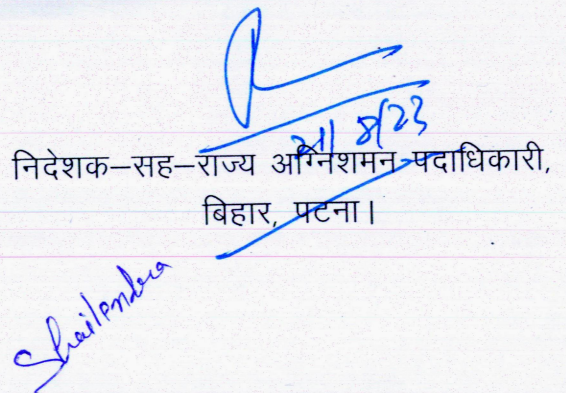 21/8/23
निदेशक–सह–राज्य अग्निशमन पदाधिकारी,
बिहार, पटना।
Shailendra